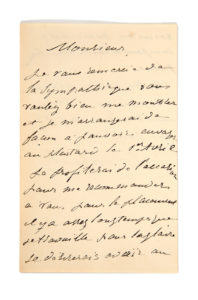 Monsieur
Je vous remercie de
la Sympathie que vous
voulez bien me montrer
et je m'arrangerai de
façon à pouvoir envoyer
au plus tard le 1er Avril
Je profiterai de l'occasion
pour me recommander
à vous pour le placement
il y a assez longtemps que
je travaille pour la gloire
je désirerais avoir un